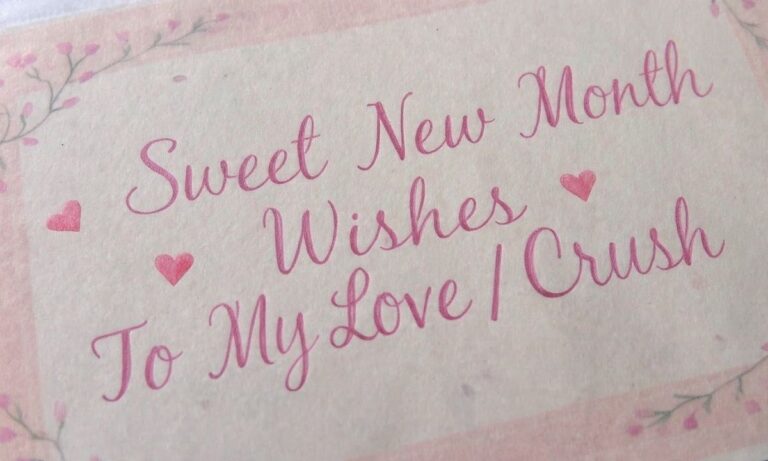 Sweet New Month
Wishes
To My Love / Crush